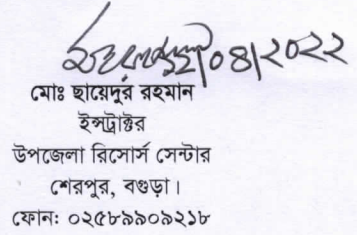 ০৪/২০২২
মোঃ ছায়েদুর রহমান
ইন্সট্রাক্টর
উপজেলা রিসোর্স সেন্টার
শেরপুর, বগুড়া।
ফোন: ০২৫৮৯৯০৯২১৮